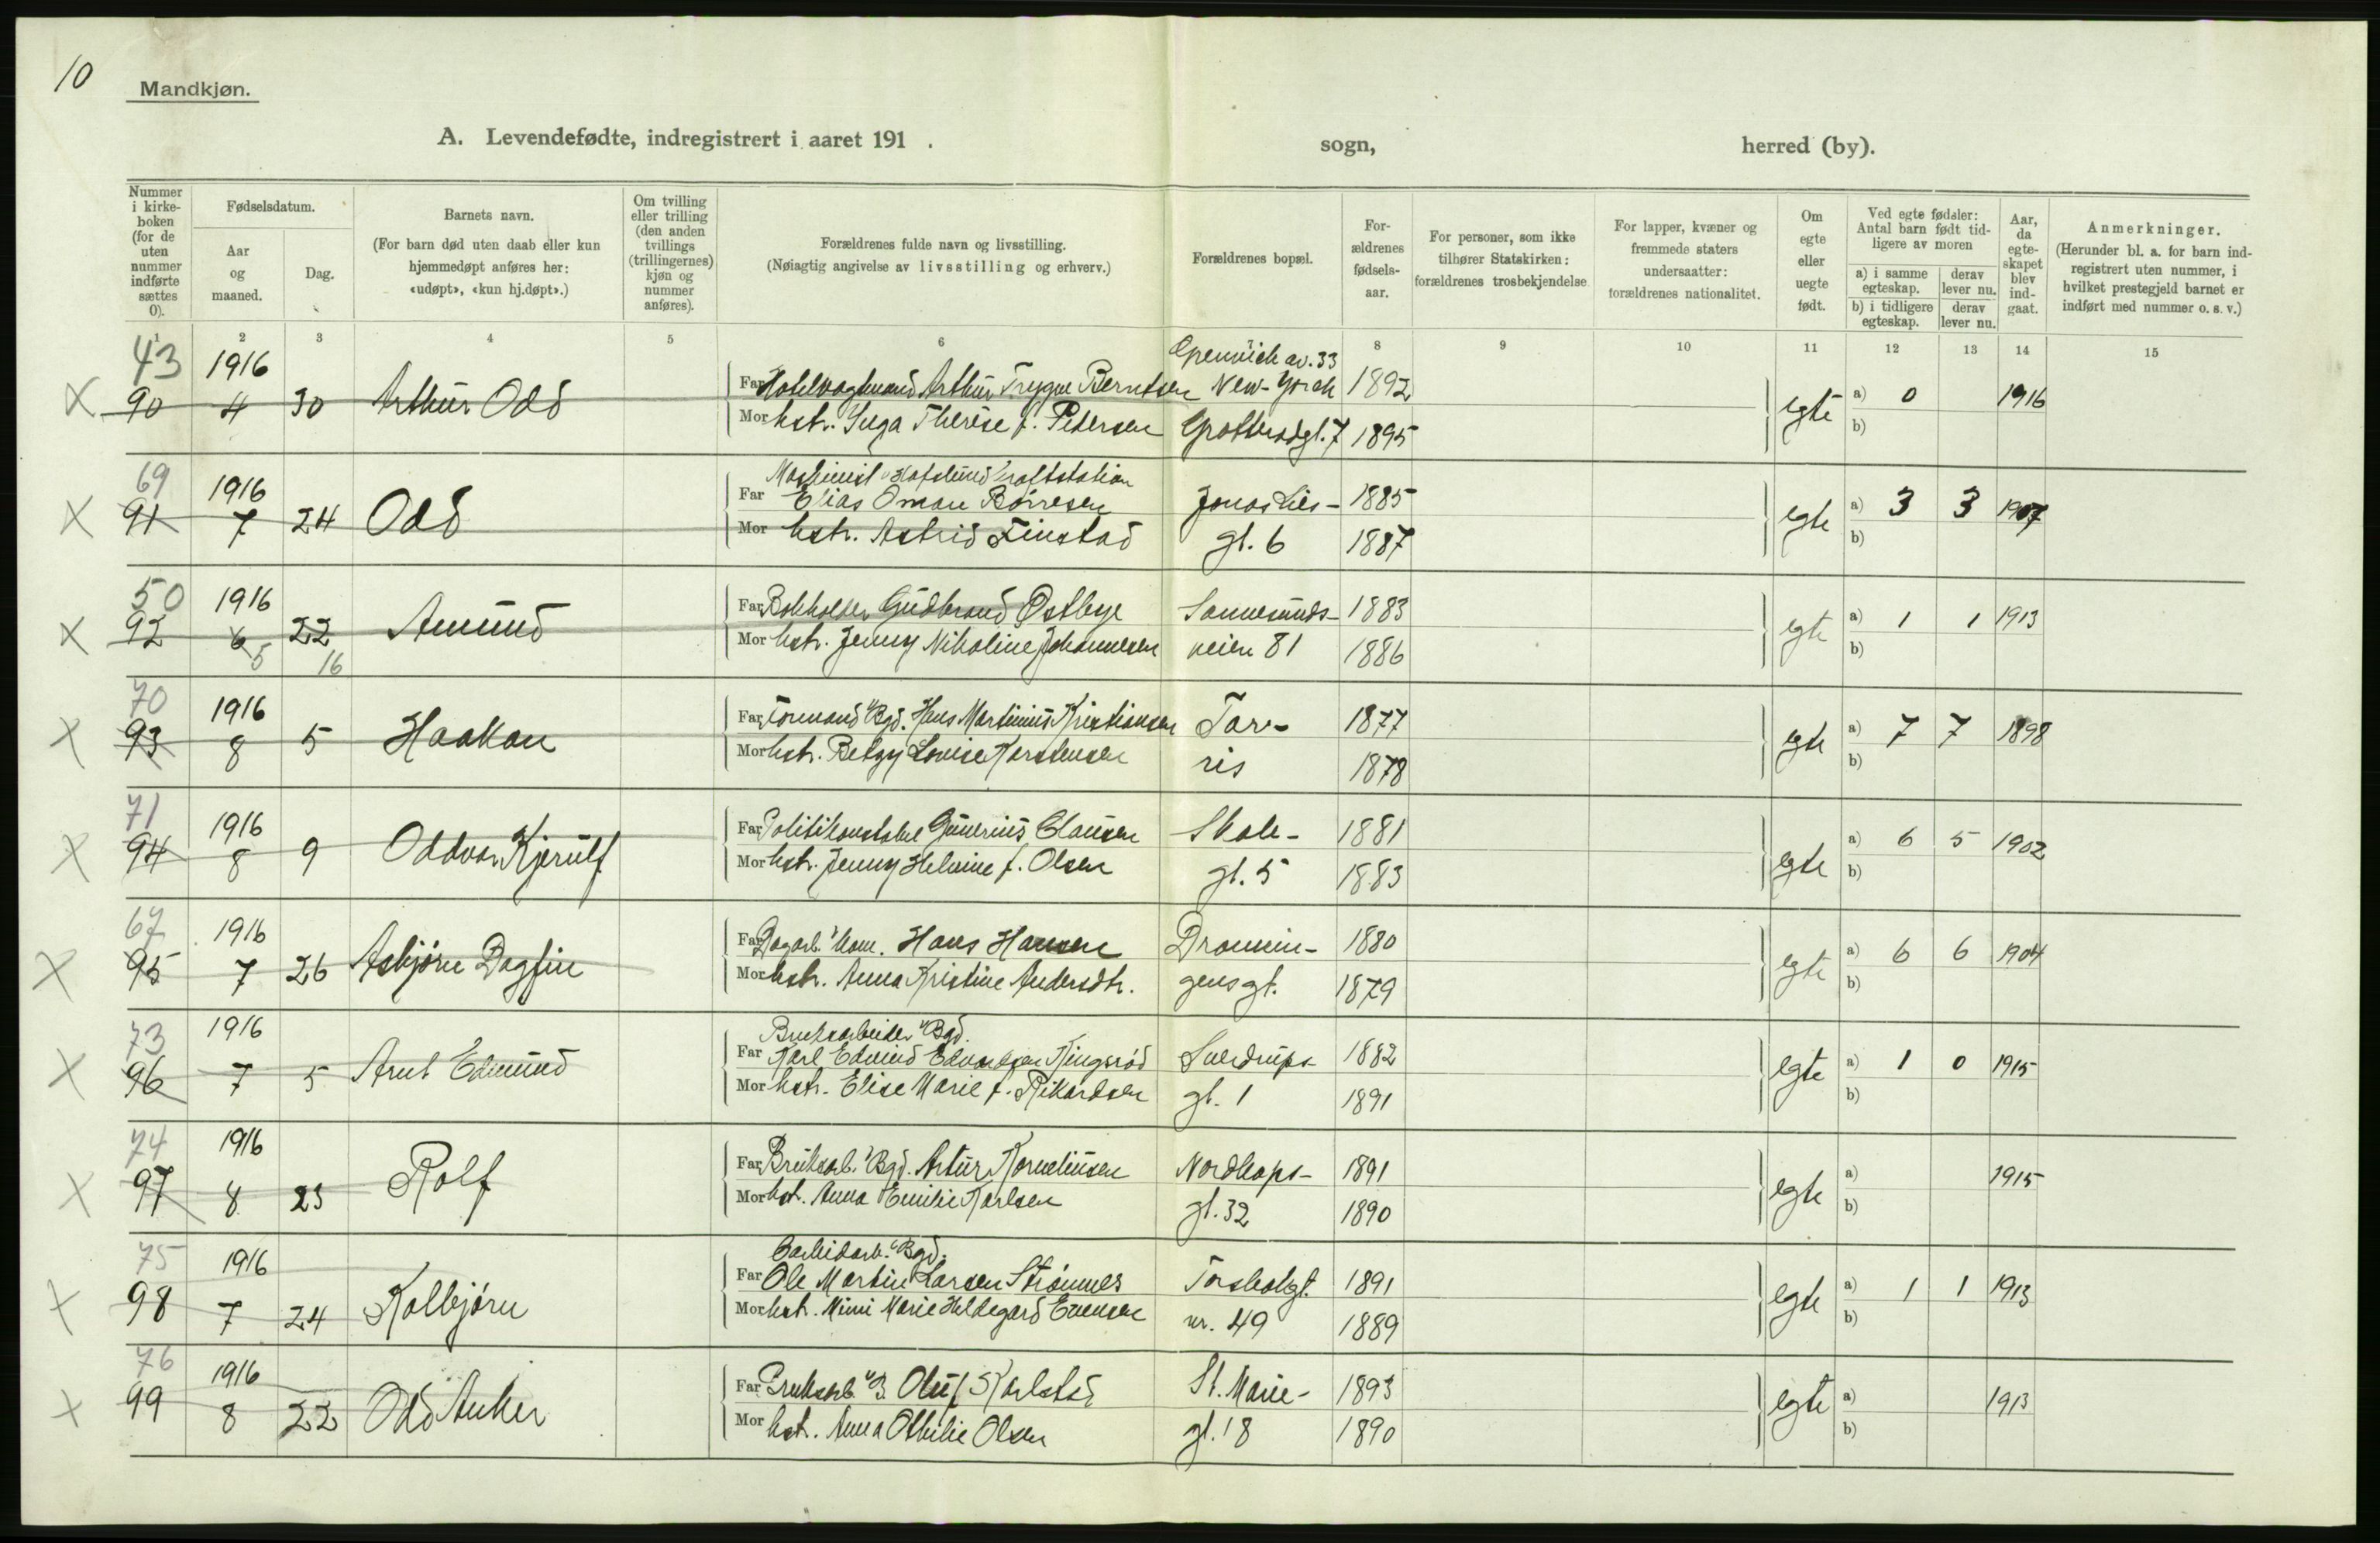 10
Mandkjøn.
A. Levendefødte, indregistrert i aaret 191 . sogn, herred (by).
Nummer i kirkeboken (for de uten nummer indførte sættes 0).
Fødselsdatum.
Aar og maaned.
Dag.
Barnets navn.
(For barn død uten daab eller kun hjemmedøpt anføres her: «udøpt», «kun hj.døpt».)
Om tvilling eller trilling (den anden tvillings (trillingernes) kjøn og nummer anføres).
Forældrenes fulde navn og livsstilling.
(Nøiagtig angivelse av livsstilling og erhverv.)
Forældrenes bopæl.
Forældrenes fødselsaar.
For personer, som ikke tilhører Statskirken: forældrenes trosbekjendelse
For lapper, kvæner og fremmede staters undersaatter: forældrenes nationalitet.
Om egte eller uegte født.
Ved egte fødsler: Antal barn født tidligere av moren
a) i samme egteskap.
derav lever nu.
b) i tidligere egteskap.
derav lever nu.
Aar, da egteskapet blev indgaat.
Anmerkninger.
(Herunder bl. a. for barn indregistrert uten nummer, i hvilket prestegjeld barnet er indført med nummer o. s. v.)
1 2 3 4 5 6 8 9 10 11 12 13 14 15
43 1916 av. 33
X 90 4 30 Arthur Odd Far Arthur Trygve Berntsen New-York 1892 egte a) 0 1916
Mor hst. Inga Therese f. Petersen 7 1895 b)
69 1916 Maskinist Hafslund Kraftstation
X 91 7 24 Odd Far Elias Oman Børresen Jonas Lies- 1885 egte a) 3 3 1907
Mor hstr. Astrid Finstad gt. 6 1887 b)
50 1916 Far Bokholder Gudbrand Østbye Sannesunds- 1883 a) 1 1 1913
X 92 6 22 Amund Mor hstr. Jenny Nikoline Johannesen veien 81 1886 egte b)
5 16
70 1916 Far Formand v/Bgd. Hans Martinius Kristiansen Tar- 1877 a) 7 7 1898
X 93 8 5 Haakon Mor hstr. Betzy Lovise Karstensen ris 1878 egte b)
71 1916 Far Politikonstabel Gunerius Clausen Skole- 1881 a) 6 5 1902
X 94 8 9 Oddvar Kjerulf Mor hstr. Jenny Helmine f. Olsen gt. 5 1883 egte b)
67 1916 Far Dagarb. Hans Hansen Dronnin- 1880 a) 6 6 1904
X 95 7 26 Asbjørn Dagfin Mor hstr. Anna Kristine Andersdtr. gens gt. 1879 egte b)
73 1916 Bruksarbeider v/Bgd.
X 96 7 5 Arnt Edmund Far Karl Edvind Edvardsen Ringsrød Sverdrups- 1882 egte a) 1 0 1915
Mor hstr. Elise Marie f. Rikardsen gt. 1 1891 b)
74 1916 Far Bruksarb. v/Bgd. Artur Korneliusen Nordkaps- 1891 a) 1915
X 97 8 23 Rolf Mor hst. Anna Emilie Karlsen gt. 32 1890 egte b)
75 1916 v/Bgd.
X 98 7 24 Kolbjørn Far Ole Martin Larsen Strømnes Torsbakgt. 1891 egte a) 1 1 1913
Mor hst. Mimi Marie Hildegard Evensen nr. 49 1889 b)
76 1916 Far Bruksarb. v/B. Oluf Karlstad St. Marie- 1893 egte a) 1913
X 99 8 22 Odd Anker Mor hst. Anna Othilie Olsen gt. 18 1890 b)